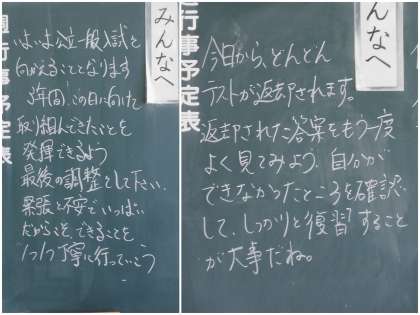 みんなへ
週行事予定表
いよいよ公立一般入試を
向かえることとなります
3年間、この日に向けて
取り組んできたことを
発揮できるよう
最後の調整をして下さい。
緊張と不安でいっぱい
だからこそ、できることを
1つ1つ丁寧に行っていこう
んなへ
行事予定表
今日から、どんどん
テストが返却されます。
返却された答案をもう一度
よく見てみよう。自分が
できなかったところを確認
して、しっかりと復習すること
が大事だね。